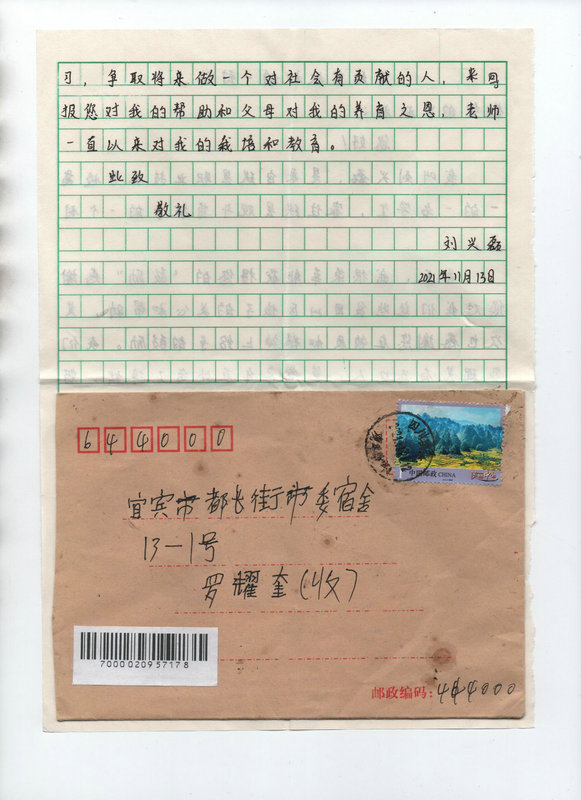 习，争取将来做一个对社会有贡献的人，来回
报您对我的帮助和父母对我的养育之恩，老师
一直以来对我的栽培和教育。
此致
敬礼
刘兴磊
2021年11月13日
644000
中国邮政 CHINA
宜宾市都长街市委宿舍
13-1号
罗耀奎(收)
7000020957178
邮政编码：444000